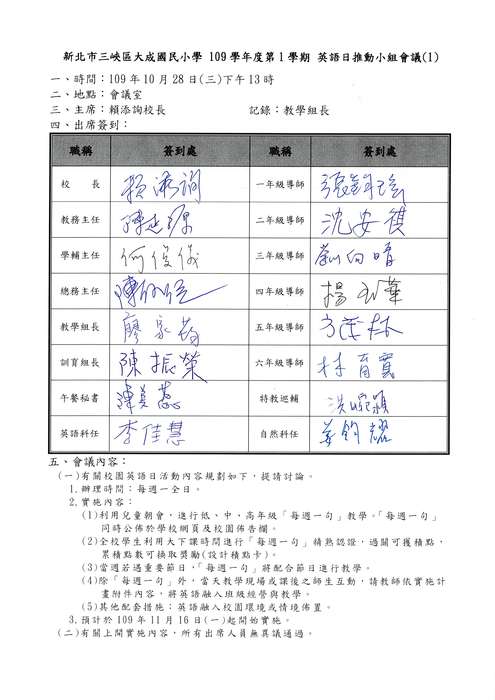 新北市三峽區大成國民小學 109學年度第1學期 英語日推動小組會議(1)
一、時間：109年10月28日(三)下午13時
二、地點：會議室
三、主席：賴添詢校長 記錄：教學組長
四、出席簽到：
職稱 簽到處 職稱 簽到處
校 長 賴添詢 一年級導師
教務主任 二年級導師 沈安祺
學輔主任 何俊儀 三年級導師
總務主任 四年級導師 楊玉華
教學組長 五年級導師
訓育組長 陳振榮 六年級導師 林育寬
午餐秘書 陳美蕊 特教巡輔 洪婉穎
英語科任 李佳慧 自然科任
五、會議內容：
(一)有關校園英語日活動內容規劃如下，提請討論。
1.辦理時間：每週一全日。
2.實施內容：
(1)利用兒童朝會，進行低、中、高年級「每週一句」教學。「每週一句」
同時公佈於學校網頁及校園佈告欄。
(2)全校學生利用大下課時間進行「每週一句」精熟認證，過關可獲積點，
累積點數可換取獎勵(設計積點卡)。
(3)當週若遇重要節日，「每週一句」將配合節日進行教學。
(4)除「每週一句」外，當天教學現場或課後之師生互動，請教師依實施計
畫附件內容，將英語融入班級經營與教學。
(5)其他配套措施：英語融入校園環境或情境佈置。
3.預計於109年11月16日(一)起開始實施。
(二)有關上開實施內容，所有出席人員無異議通過。